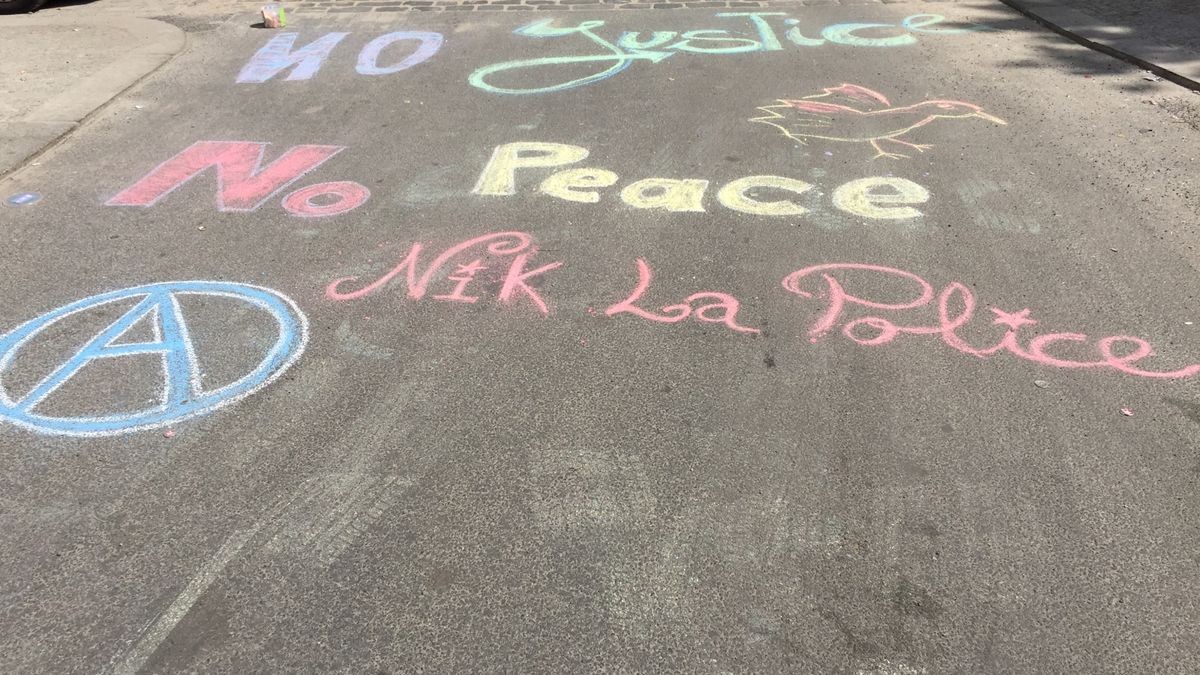 NO Justice
No Peace
Nik La Police
A